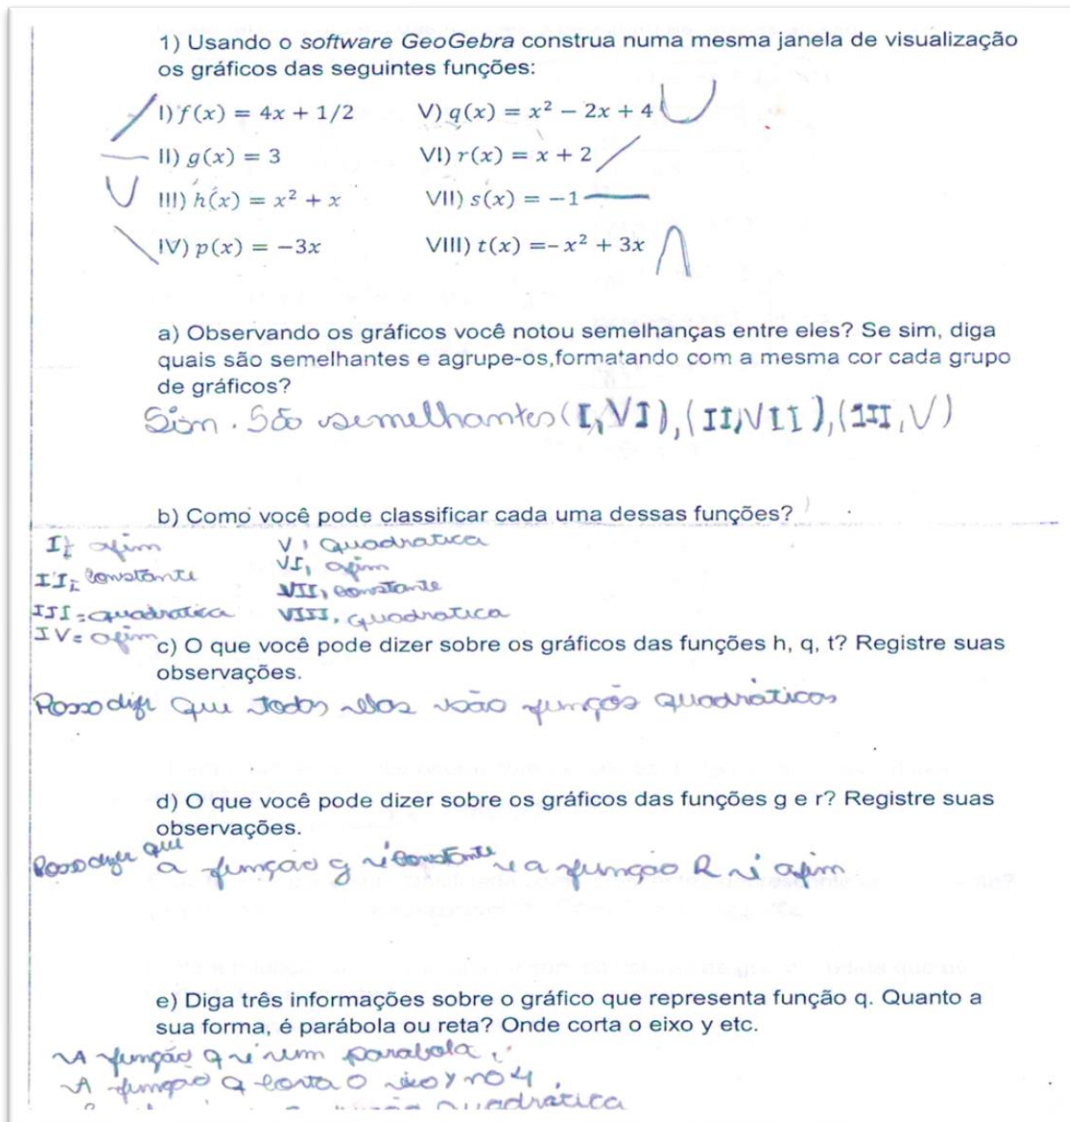 1) Usando o software GeoGebra construa numa mesma janela de visualização
os gráficos das seguintes funções:
I) f(x) = 4x + 1/2 V) q(x) = x² − 2x + 4
II) g(x) = 3 VI) r(x) = x + 2
III) h(x) = x² + x VII) s(x) = −1
IV) p(x) = −3x VIII) t(x) =− x² + 3x
a) Observando os gráficos você notou semelhanças entre eles? Se sim, diga
quais são semelhantes e agrupe-os,formatando com a mesma cor cada grupo
de gráficos?
Sim. São semelhantes (I, VI), (II, VII), (III, V)
b) Como você pode classificar cada uma dessas funções?
I: afim V, Quadratica
II, constante VI, afim
III = quadratica VII, constante
IV = afim VIII, quadratica
c) O que você pode dizer sobre os gráficos das funções h, q, t? Registre suas
observações.
Posso dizer que todos elas são funçõs quadráticas
d) O que você pode dizer sobre os gráficos das funções g e r? Registre suas
observações.
Posso dizer que a função g é constante e a função R é afim
e) Diga três informações sobre o gráfico que representa função q. Quanto a
sua forma, é parábola ou reta? Onde corta o eixo y etc.
A função q é um parabola,
A função q corta o eixo y no 4,
quadrática